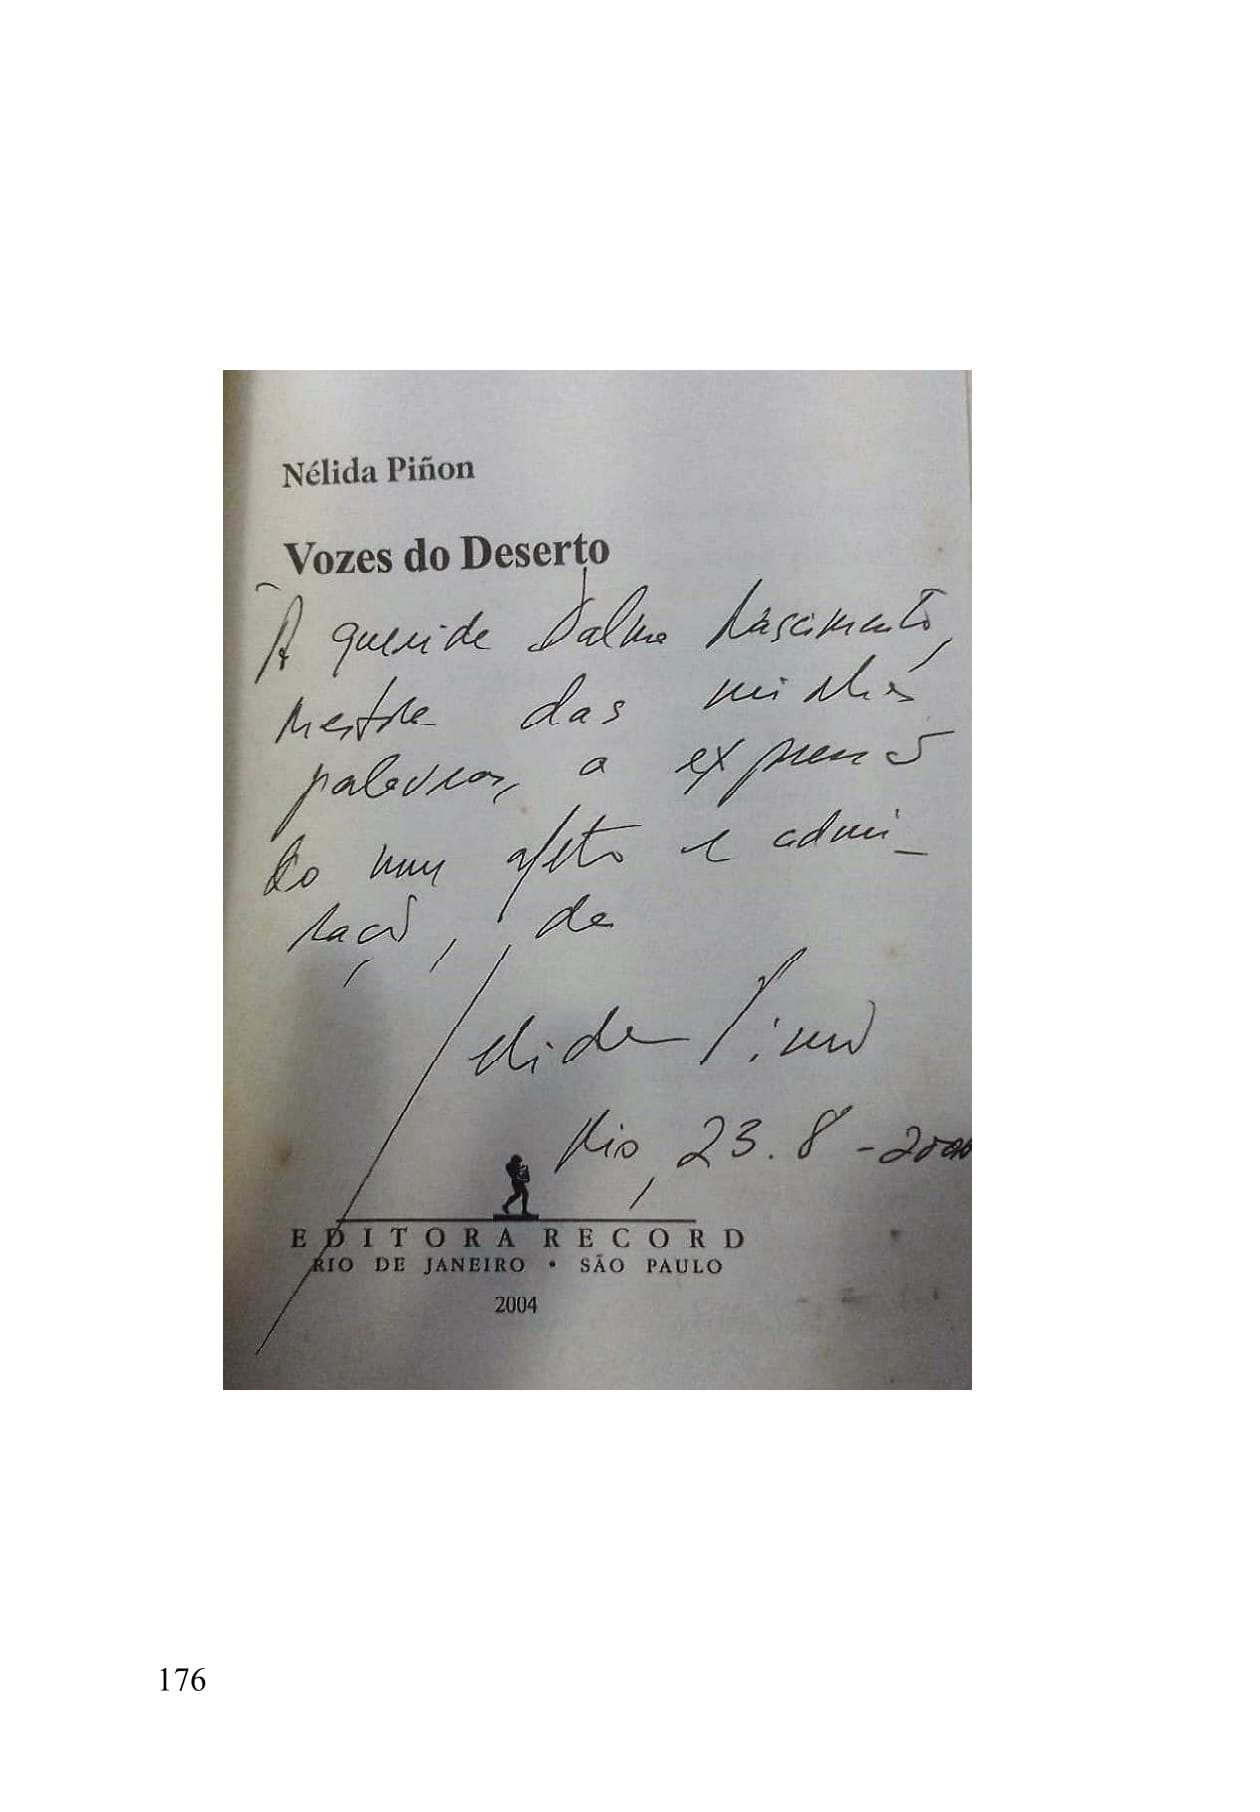 Nélida Piñon
Vozes do Deserto
À querida Dalma Nascimento,
mestre das minhas
palavras, a expressão
do meu afeto e admi-
ração, de
Nélida Piñon
Rio, 23.8-
EDITORA RECORD
RIO DE JANEIRO • SÃO PAULO
2004
176